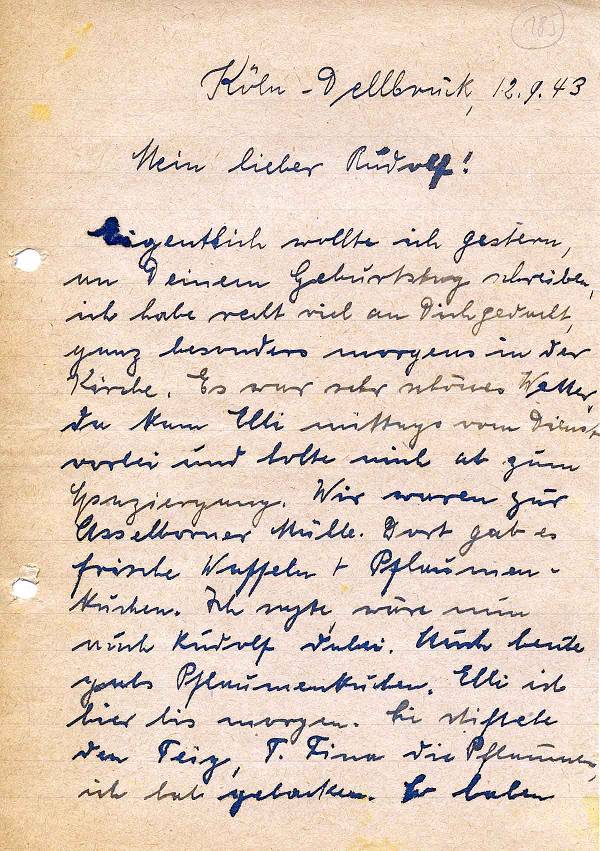 185
Köln-Dellbrück, 12.9.43
Mein lieber Rudolf!
Eigentlich wollte ich gestern,
an Deinem Geburtstag schreiben,
ich habe recht viel an Dich gedacht,
ganz besonders morgens in der
Kirche. Es war sehr schönes Wetter,
da kam Elli mittags vom Dienst
vorbei und holte mich ab zum
Spaziergang. Wir waren zur
Isselborner Mühle. Dort gab es
frische Waffeln + Pflaumen-
kuchen. Ich sagte, wäre nun
auch Rudolf dabei. Auch heute
gabs Pflaumenkuchen. Elli ist
hier bis morgen. Sie stiftete
den Teig, T. Fina die Pflaumen,
ich hab gebacken. So haben